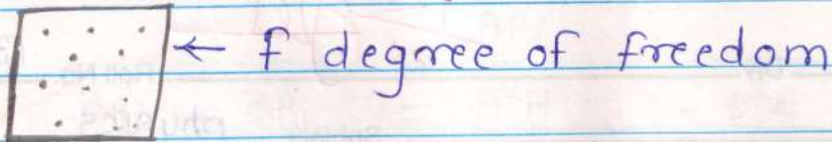 ← f degree of freedom